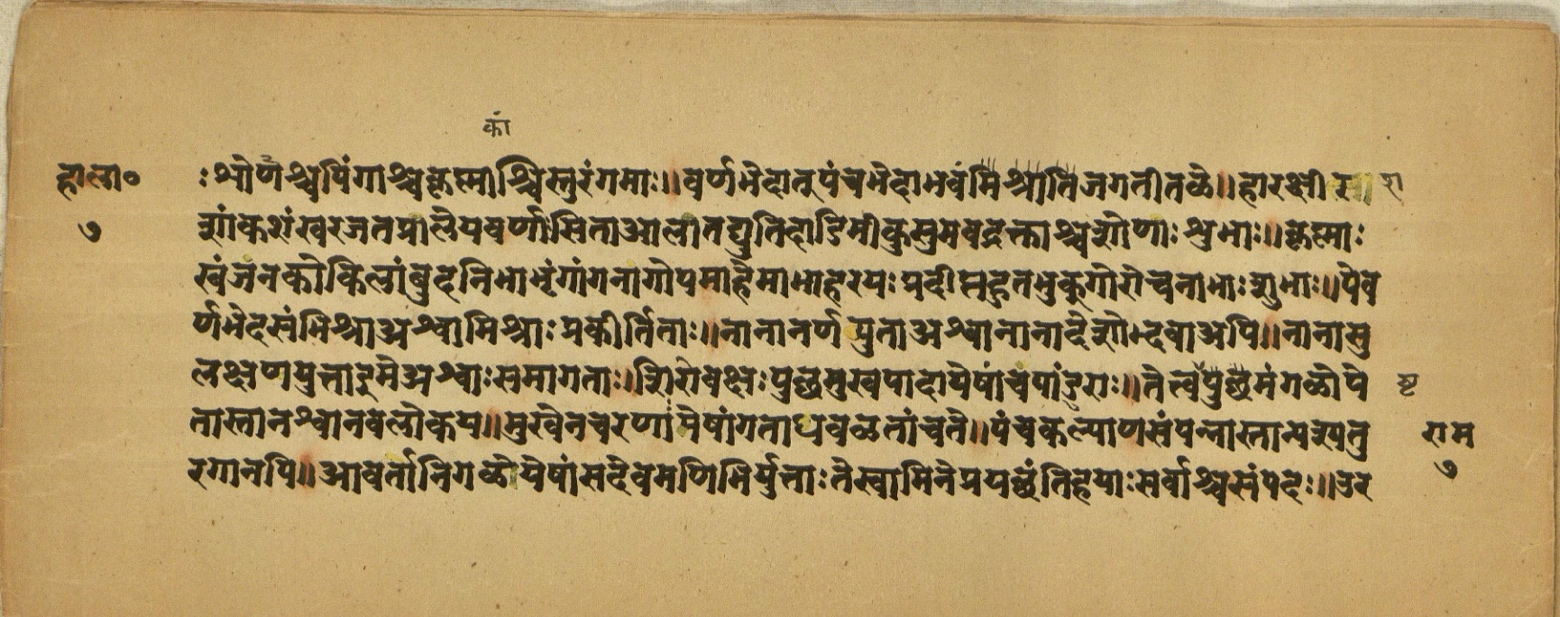 कां
हाला० :श्रोणाश्चपिंगाश्चकृष्माश्चिस्तुरंगमाः॥वर्णभेदातुपंचभेदाभवंमिश्रातिजगतीतळे॥हारक्षीरसा रा
७ शांकशंखरजतप्रालेयवर्णासिताआलातद्युतिदाडिमीकुसुमवद्रक्ताश्चशोणाःशुभाः॥कृष्माः
खंजनकोकिलांबुदनिभाभृंगांगनागोपमाहेमाभाहरयःप्रदीप्तहुतभुक्गोरोचनाभाःशुभाः॥पेव
र्णभेदसंमिश्राअश्वामिश्राःप्रकीर्तिताः॥नानानर्णयुताअश्वानानादेशोभ्दवाअपि॥नानासु
लक्षणयुक्ताइमेअश्वाःसमागताः॥शिरोवक्षःपुछमुखपादायेषांचपांडुराः॥तेत्वपुछमंगळोपे ष्ट
तास्तानश्वानवलोकय॥मुखेनचरणांमेषांगताधवळतांचते॥पंचकल्याणसंपन्नास्तान्पश्यतु राम
रगानपि॥आवर्तानिगळोयेषांसदेवमणिभिर्युक्ताःतेस्वामिनेप्रयछंतिहयाःसर्वाश्चसंपदः॥उर ७